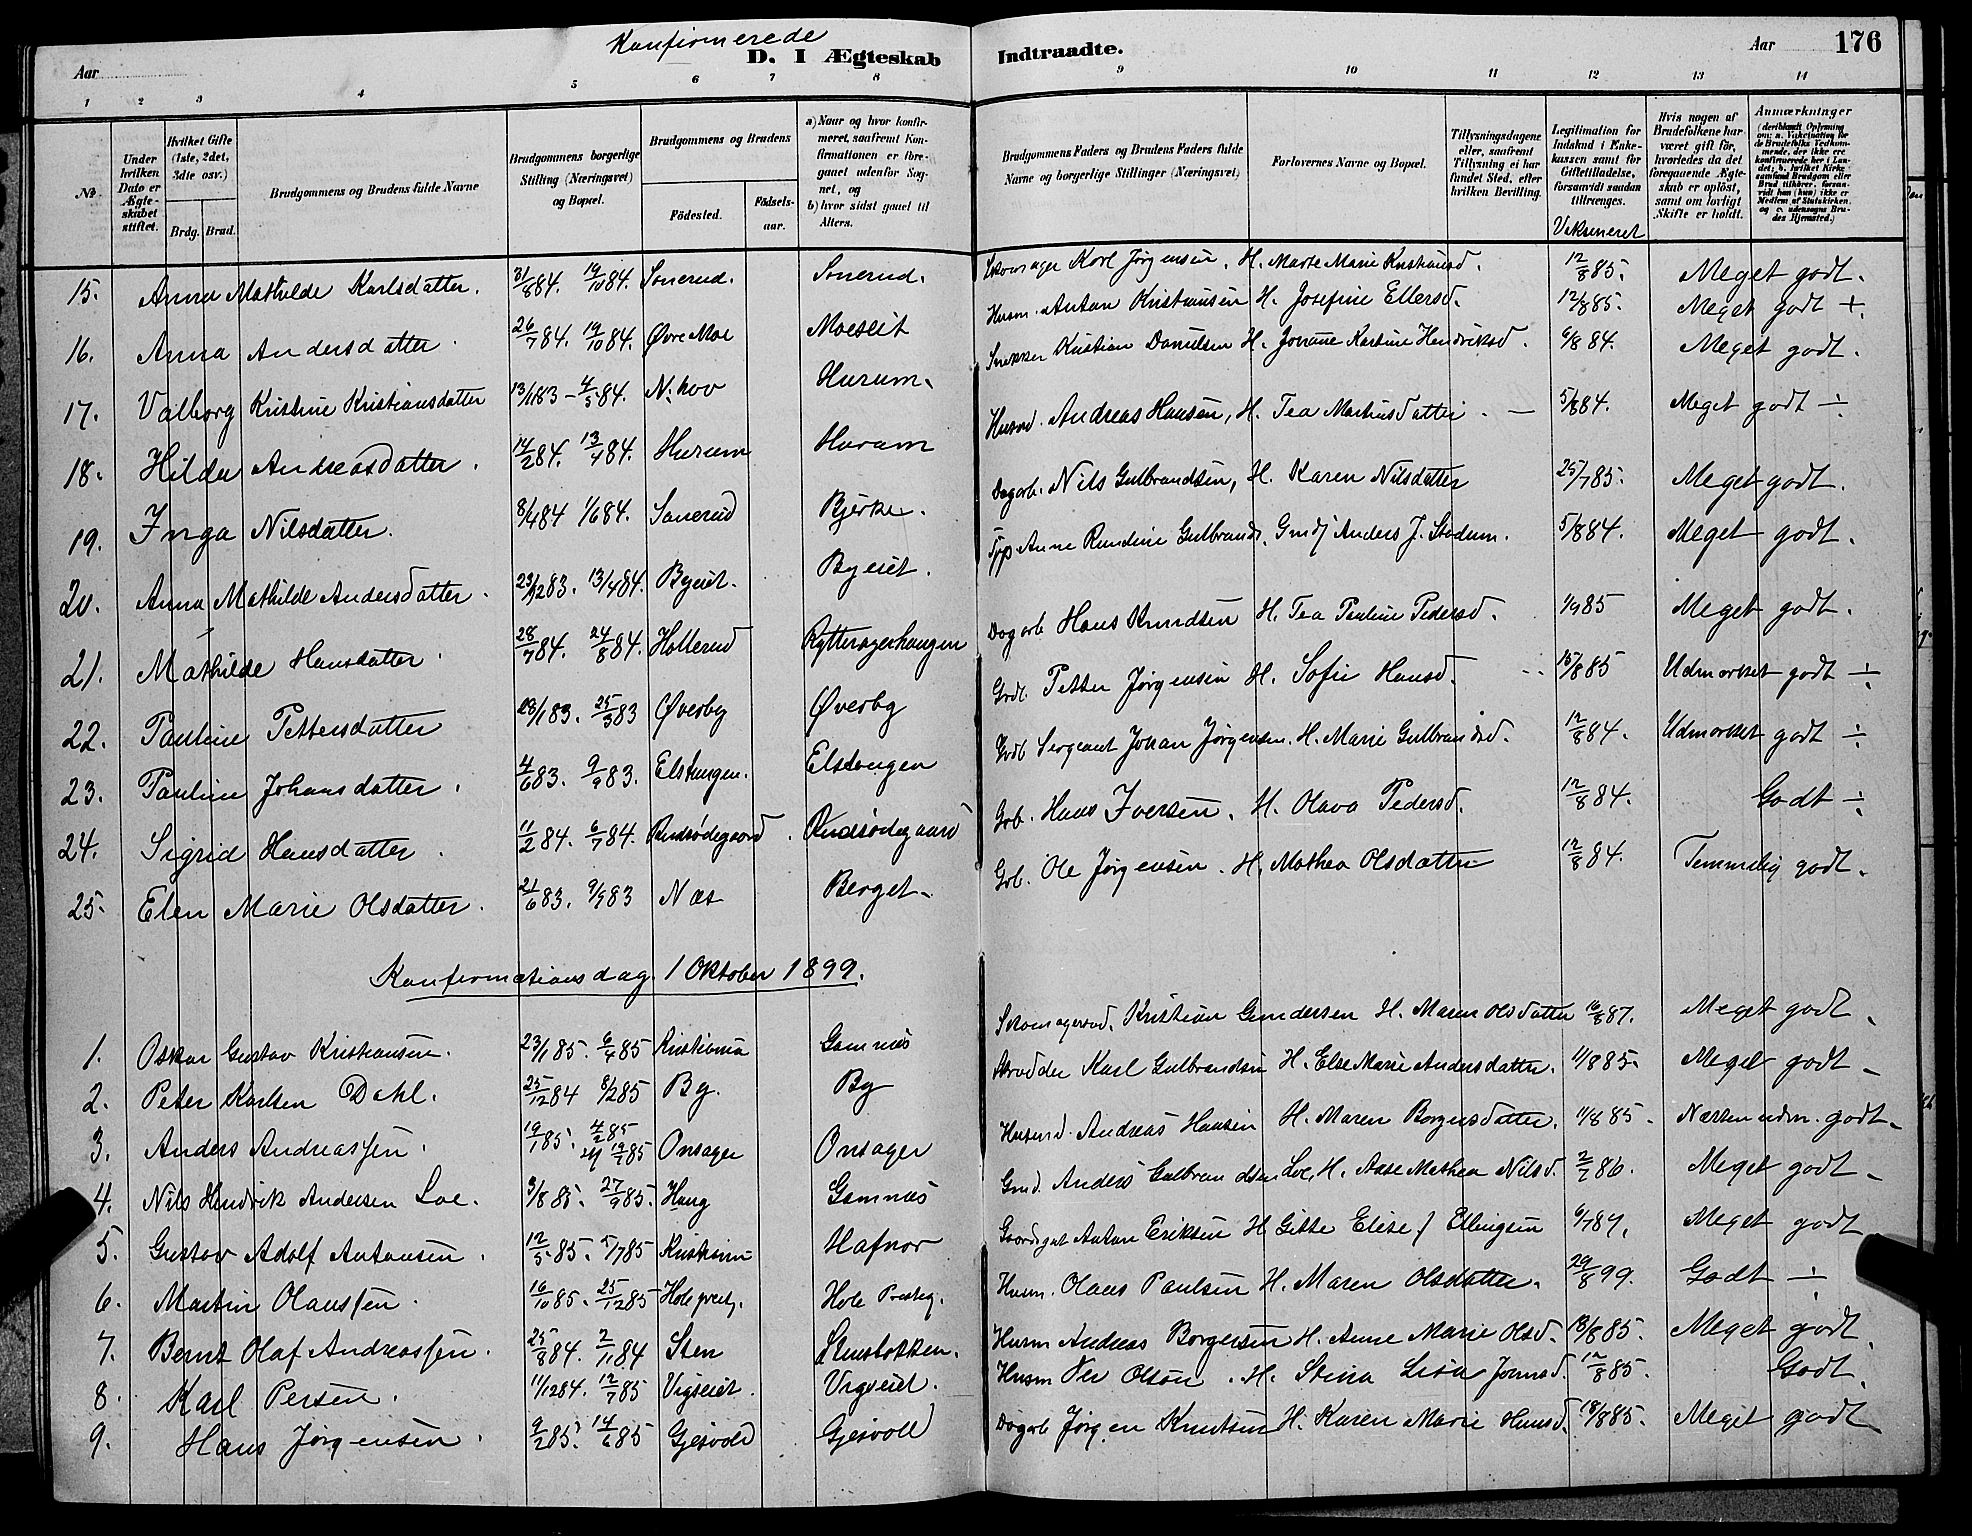 Konfirmerede
Aar D. I Ægteskab Indtraadte. Aar 176
1 2 3 4 5 6 7 8 9 10 11 12 13 14
No.
Under hvilken Dato er Ægteskabet stiftet.
Hvilket Gifte (1ste, 2det, 3die osv.)
Brdg. Brud.
Brudgommens og Brudens fulde Navne
Brudgommens borgerlige Stilling (Næringsvei) og Bopæl.
Brudgommens og Brudens
Fødested. Fødselsaar.
a) Naar og hvor konfirmeret, saafremt Konfirmationen er foregaaet udenfor Sognet, og
b) hvor sidst gaaet til Alters.
Brudgommens Faders og Brudens Faders fulde Navne og borgerlige Stillinger (Næringsvei)
Forlovernes Navne og Bopæl.
Tillysningsdagene eller, saafremt Tillysning ei har fundet Sted, efter hvilken Bevilling.
Legitimation for Indskud i Enkekassen samt for Giftetilladelse, forsaavidt saadan tiltrænges.
Vaksineret
Hvis nogen af Brudefolkene har været gift før, hvorledes da det foregaaende Ægteskab er opløst, samt om lovligt Skifte er holdt.
Anmærkninger
(deriblandt Oplysning om: a. Vakcination for de Brudefolks Vedkommende, der ikke ere konfirmerede her i Landet; b. hvilket Kirkesamfund Brudgom eller Brud tilhører, forsaavidt han (hun) ikke er Medlem af Statskirken, og c. udensogns Brudes Hjemsted.)
15. Anna Mathilde Karlsdatter. 31/8 84. 19/10 84. Sonerud. Sonerud. Skomager Karl Jørgensen. H. Marte Marie Kristiansd. 12/8 85. Meget godt.
16. Anna Andersdatter. 26/7 84. 19/10 84. Øvre Moe Moeseit Husm. Antan Kristiansen H. Josefine Ellersd. 12/8 85. Meget godt +.
17. Valborg Kristine Kristiansdatter 13/11 83 – 4/5 84. N. hov Hurum. Snekker Kristian Danielsen H. Johanne Kartine Hendriksd. 9/8 84. Meget godt.
18. Hilda Andreasdatter. 14/2 84. 13/4 84. Hurum Hurum Husmd. Andreas Hansen, H. Tea Mathisdatter. — 5/8 84. Meget godt ÷
19. Inga Nilsdatter. 8/4 84 1/6 84. Sonerud Bjerke. Dagarb. Nils Gulbrandsen, H. Karen Nilsdatter 25/7 85. Meget godt.
20. Anna Mathilde Andersdatter. 23/12 83. 13/4 84. Byeiet. Byeiet. Tpp Anne Rundine Gulbrandsd. Gmdj Anders J. Stadum. 5/8 84. Meget godt.
21. Mathilde Hansdatter. 28/7 84. 24/8 84. Hollerud Rytteragerhaugen Dagarb Hans Knudsen H. Tea Pauline Pedersd. 1/9 85 Meget godt.
22. Pauline Pettersdatter 28/1 83. 25/3 83 Øverby Øverby Grdb. Petter Jørgensen H. Sofie Hansd. 15/8 85 Udmærket godt ÷
23. Pauline Johansdatter. 4/6 83. 9/9 83. Elstangen. Elstangen Grdb Sergeant Johan Jørgensen. H. Marie Gulbrandsd. 12/8 84. Udmærket godt ÷
24. Sigrid Hansdatter. 11/2 84. 6/7 84. Rudsødegaard. Rudsødegaard Grb. Hans Iversen. H. Olava Pedersd. 12/8 84. Godt ÷
25. Elen Marie Olsdatter. 21/6 83. 9/9 83 Næs Berget. Grb. Ole Jørgensen. H. Mathea Olsdatter 12/8 84. Temmelig godt.
Konfirmationsdag 1 Oktober 1899.
1. Oskar Gustav Kristiansen. 23/1 85. 6/4 85 Kristiania Gomnæs Skomagersvd. Kristian Gundersen H. Maren Olsdatter 16/8 87. Meget godt.
2. Peter Karlsen Dahl. 25/12 84 8/2 85 By. By Skrædder Karl Gulbrandsen H. Else Marie Andersdatter. 11/8 85. Meget godt
3. Anders Andreassen. 19/1 85. 4/2 85 19/7 85 Onsager Onsager Husmd. Andreas Hansen H. Maren Borgersdatter. 11/8 85. Næsten udm. godt.
4. Nils Hendrik Andersen Loe. 3/8 85. 27/9 85. Haug Gomnæs Gmd. Anders Gulbrandsen Loe, H. Aase Mathea Nilsd. 2/7 86. Meget godt
5. Gustav Adolf Antansen. 12/5 85. 5/7 85 Kristiania Hafnor Gaardsgut Antan Eriksen H. Gitte Elise f Ellingsen 6/7 87. Meget godt
6. Martin Olaussen. 16/10 85. 25/12 85 Hole prestg. Hole Prestg. Husm. Olaus Paulsen H. Maren Olsdatter. 29/8 99. Godt ÷
7. Bernt Olaf Andreassen. 25/8 84. 2/11 84 Sten Stensbakken. Husm Andreas Borgersen H. Anne Marie Olsd. 13/8 85. Meget godt.
8. Karl Persen. 11/12 84. 12/7 85 Vigseiet. Vigseiet. Husm Per Olsen. H. Stina Lisa Jonasd. 12/8 85. Godt.
9. Hans Jørgensen. 9/2 85. 14/6 85 Gjesvold Gjesvold Dagarb Jørgen Knutsen H. Karen Marie Hansd. 18/8 85. Meget godt